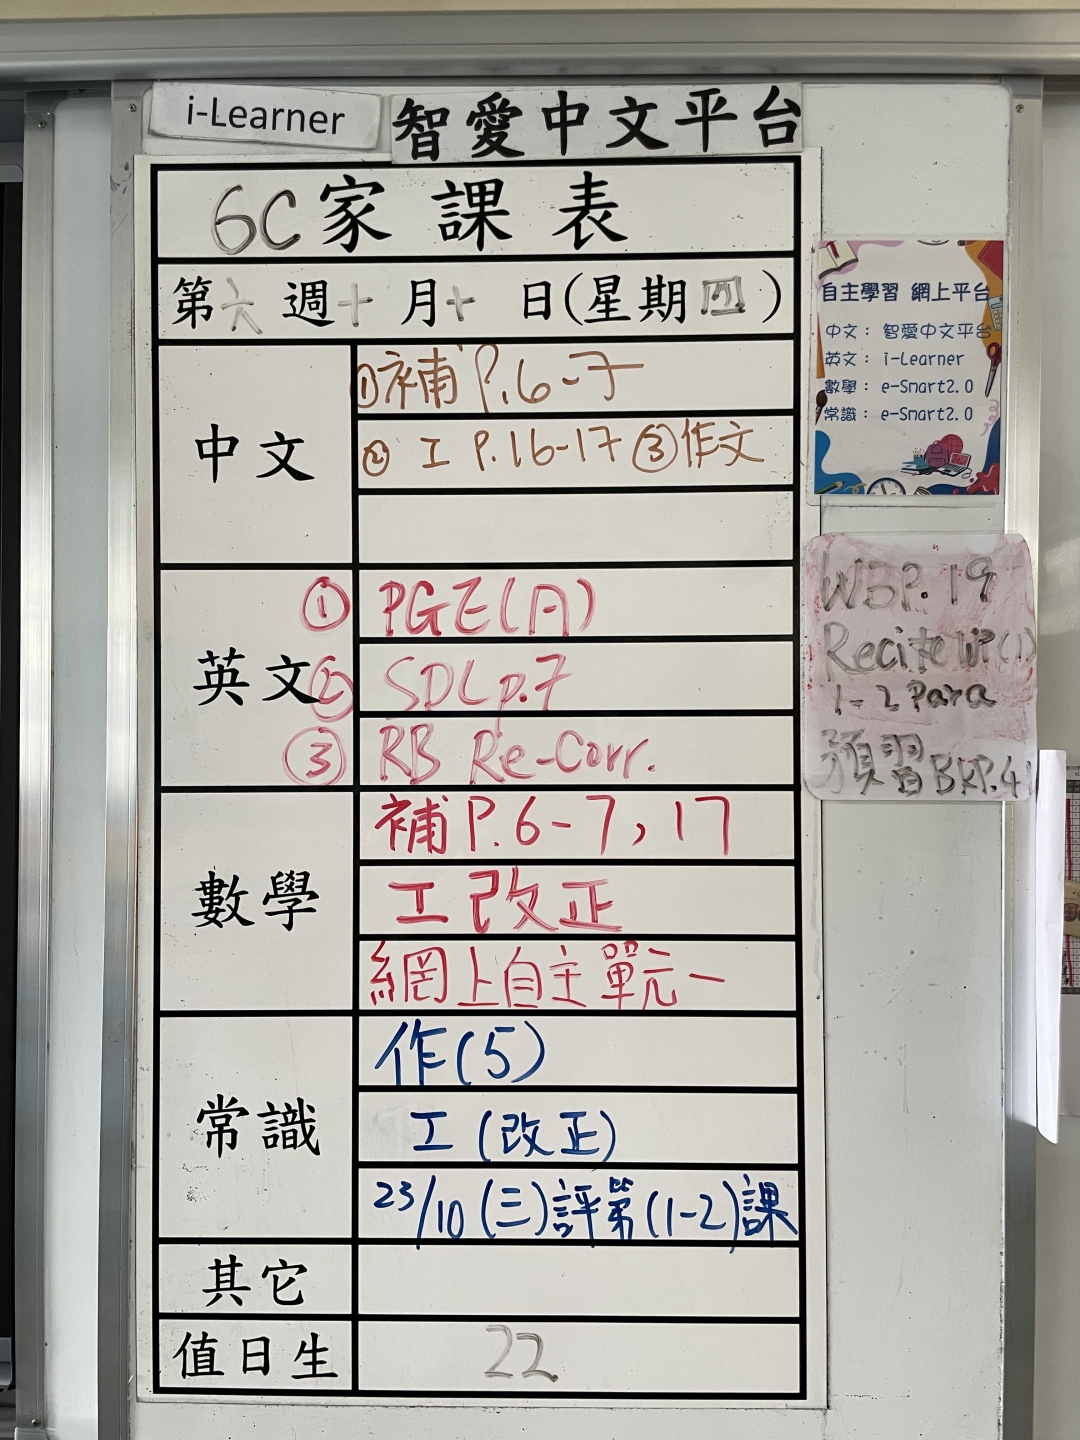 i-Learner 智愛中文平台
6C家課表
第六週十月十日(星期四)
中文
①補P.6-7
② 工 P.16-17 ③作文
英文
① PGE(A)
② SDL p.7
③ RB Re-Corr.
數學
補P.6-7,17
工改正
網上自主單元一
常識
作(5)
工(改正)
23/10(三)評第(1-2)課
其它
值日生
22
自主學習 網上平台
中文: 智愛中文平台
英文: i-Learner
數學: e-Smart2.0
常識: e-Smart2.0
WBP.19
Recite WP(1)
1-2 Para
預習BKP.4